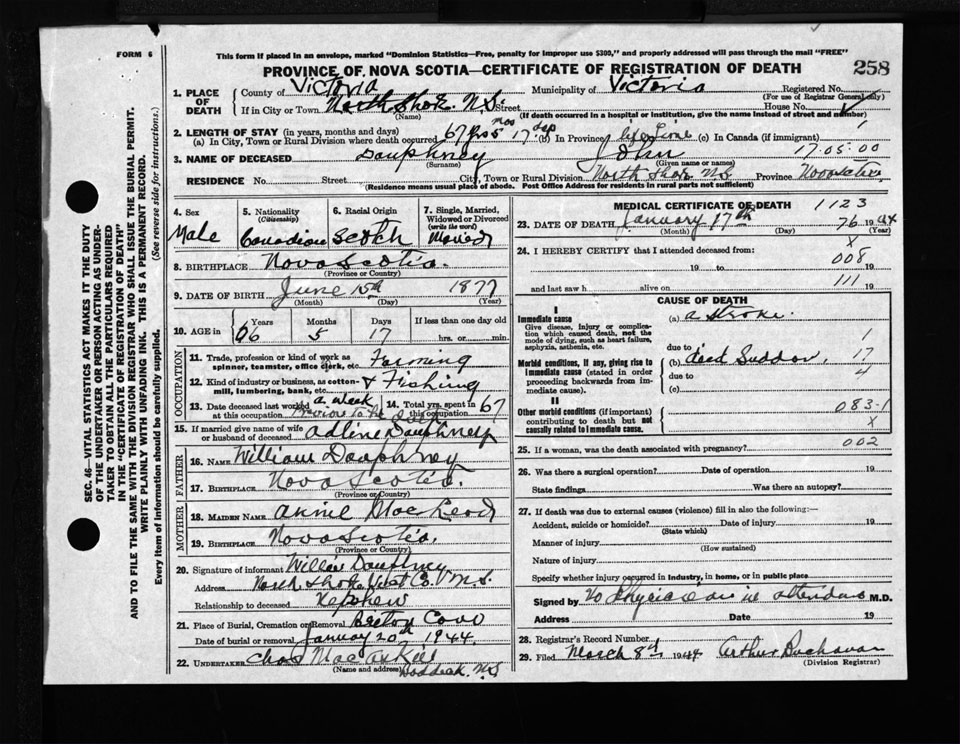 FORM 6
This form if placed in an envelope, marked "Dominion Statistics—Free, penalty for improper use $300," and properly addressed will pass through the mail "FREE"
PROVINCE OF NOVA SCOTIA—CERTIFICATE OF REGISTRATION OF DEATH 258
1. PLACE OF DEATH County of Victoria Municipality of Victoria Registered No.
(For use of Registrar General only)
If in City or Town North Shore N.S. Street House No.
(Name) (If death occurred in a hospital or institution, give the name instead of street and number)
2. LENGTH OF STAY (in years, months and days)
(a) In City, Town or Rural Division where death occurred 67 yrs 5 mos 17 days (b) In Province life time (c) In Canada (if immigrant)
3. NAME OF DECEASED Dauphney John 17.05.00
(Surname) (Given name or names)
RESIDENCE No. Street City, Town or Rural Division North Shore N.S Province Nova Scotia
(Residence means usual place of abode. Post Office Address for residents in rural parts not sufficient)
SEC. 46—VITAL STATISTICS ACT MAKES IT THE DUTY OF THE UNDERTAKER OR PERSON ACTING AS UNDERTAKER TO OBTAIN ALL THE PARTICULARS REQUIRED IN THE "CERTIFICATE OF REGISTRATION OF DEATH" AND TO FILE THE SAME WITH THE DIVISION REGISTRAR WHO SHALL ISSUE THE BURIAL PERMIT.
WRITE PLAINLY WITH UNFADING INK. THIS IS A PERMANENT RECORD.
Every item of information should be carefully supplied. (See reverse side for instructions.)
4. Sex Male
5. Nationality (Citizenship) Canadian
6. Racial Origin Scotch
7. Single, Married, Widowed or Divorced (write the word) Married
8. BIRTHPLACE Nova Scotia.
(Province or Country)
9. DATE OF BIRTH June 15th 1877
(Month) (Day) (Year)
10. AGE in Years Months Days If less than one day old
66 5 17 hrs. or min.
OCCUPATION
11. Trade, profession or kind of work as spinner, teamster, office clerk, etc. Farming
12. Kind of industry or business, as cotton-mill, lumbering, bank, etc. & Fishing
13. Date deceased last worked at this occupation a week previous to his
14. Total yrs. spent in this occupation 67
15. If married give name of wife or husband of deceased Adline Dauphney
FATHER
16. Name William Dauphney
17. Birthplace Nova Scotia.
(Province or Country)
MOTHER
18. Maiden Name Annie MacLeod
19. Birthplace Nova Scotia.
(Province or Country)
20. Signature of informant Dauphney
Address North Shore Vict Co. N.S.
Relationship to deceased Nephew
21. Place of Burial, Cremation or Removal Breton Cove
Date of burial or removal January 20th 1944
22. UNDERTAKER Chas MacAskill
(Name and address) Baddeck N.S
MEDICAL CERTIFICATE OF DEATH 1123
23. DATE OF DEATH January 17th 76 1944
(Month) (Day) (Year)
24. I HEREBY CERTIFY that I attended deceased from: X
19 to 008 19
and last saw h alive on 111 19
CAUSE OF DEATH
I
Immediate cause (a) a stroke.
Give disease, injury or complication which caused death, not the mode of dying, such as heart failure, asphyxia, asthenia, etc.
due to 1
Morbid conditions, if any, giving rise to immediate cause (stated in order proceeding backwards from immediate cause).
(b) died Sudden, 17
due to 4
(c)
II
Other morbid conditions (if important) contributing to death but not causally related to immediate cause.
083-1
X
25. If a woman, was the death associated with pregnancy? 002
26. Was there a surgical operation? Date of operation 19
State findings Was there an autopsy?
27. If death was due to external causes (violence) fill in also the following:—
Accident, suicide or homicide? Date of injury 19
(State which)
Manner of injury
(How sustained)
Nature of injury
Specify whether injury occurred in industry, in home, or in public place
Signed by No Physician in attendance M.D.
Address Date 19
28. Registrar's Record Number 1
29. Filed March 8th 1944 Arthur Buchanan
(Division Registrar)